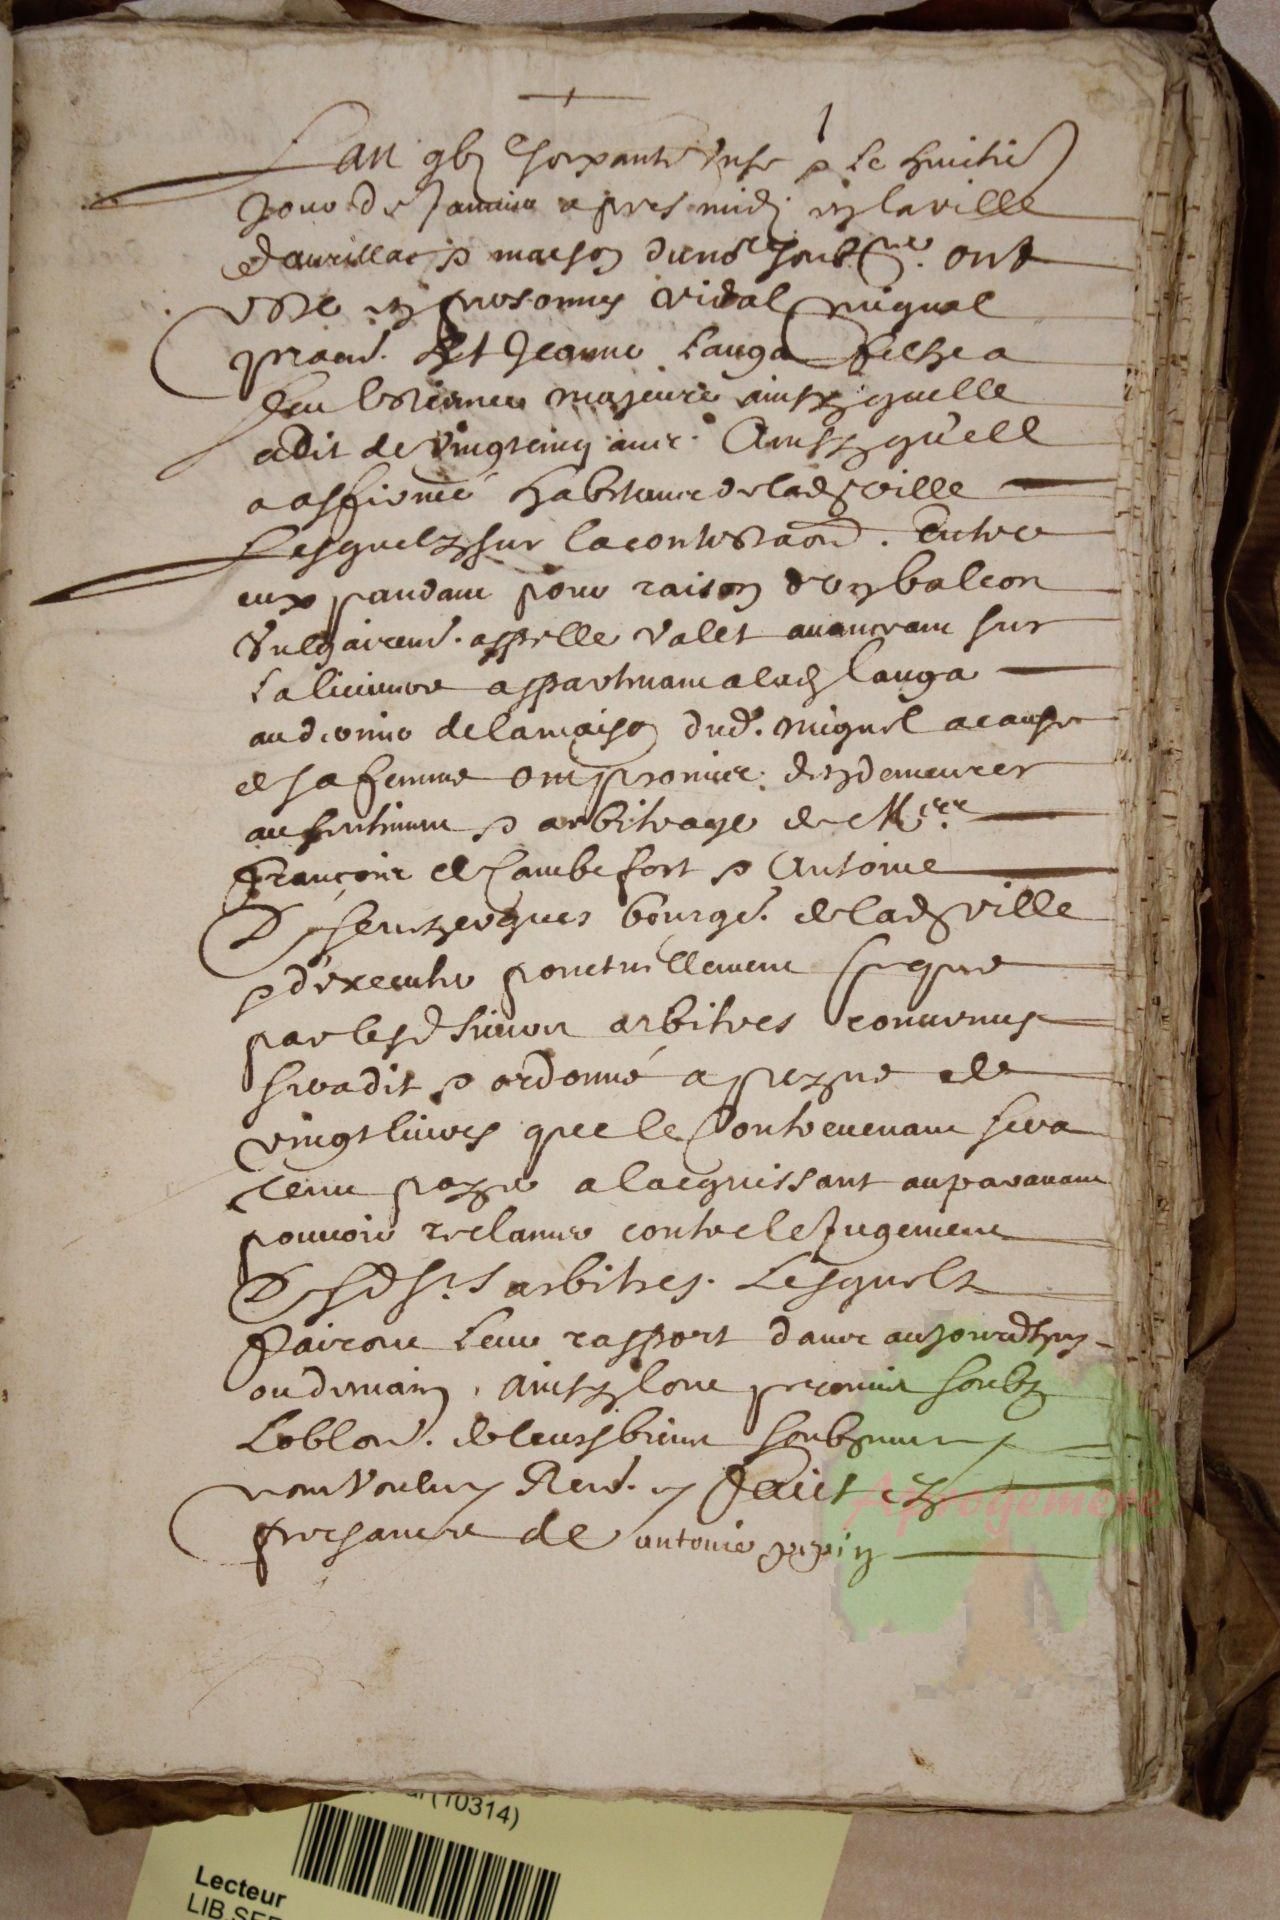 Lan gbj c soixante unse & le huictie
Jour de Janvier apres midj en la ville
daurillac & maison du nore soubne. ont
este en personnes vidal miquel
prand. Et Jeanne Lauga filhe a
feu estienne majeure ainsy quelle
a dit de vingt cinq ans. Ainsy quell
a affirmé habitans de lad ville
Lesquelz sur la contestaon. Entre
eux pandant pour raison dun balcon
Vulgairemt. appelle valet avancant sur
La appartenant a lad Lauga
au devant de la maison dud. miquel a cause
de sa femme ont promis den demeurer
au sentiment & arbitrage de Mrs
François de Cambefort & Antoine
De senezergues bourgs. de lad ville
& dexecuter ponctuellement ce que
par lesd sieurs arbitres convenus
sera dit & ordonné a peyne de
vingt livres que le Contrevenant sera
tenu payer a lacquissant auparavant
pouvoir reclamer contre le Jugement
Desd srs arbitres. Lesquelz
fairont leur rapport dans aujourdhuy
ou demain, ainsy lont promis soubz
Loblon. de leurs biens soubzmis
Rent. faict ez
presance de antoine pepin
(10314)
Lecteur
Aprogemere